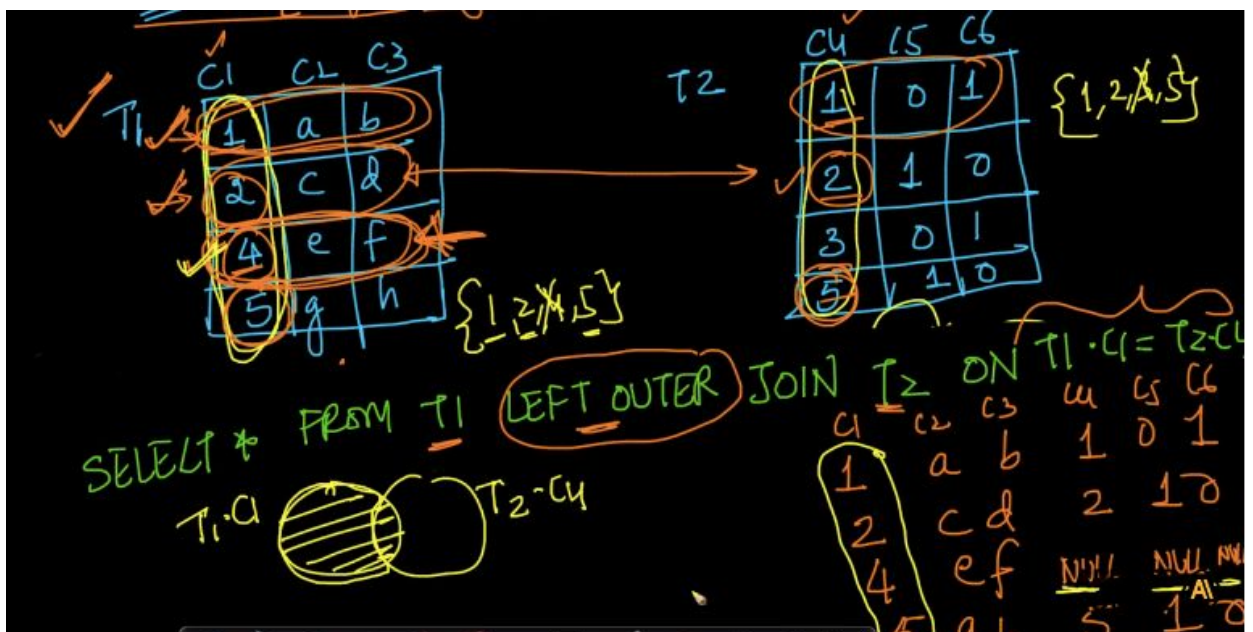 C1 C2 C3
T1
1 a b
2 c d
4 e f
5 g h
{1,2,4,5}
C4 C5 C6
T2
1 0 1
2 1 0
3 0 1
5 1 0
{1,2,4,5}
SELECT * FROM T1 LEFT OUTER JOIN T2 ON T1.C1=T2.C4
T1.C1
T2.C4
C1 C2 C3 C4 C5 C6
1 a b 1 0 1
2 c d 2 1 0
4 e f NULL NULL
5 5 1 0